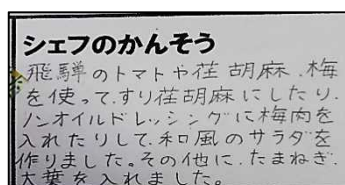 シェフのかんそう
飛騨のトマトや荏胡麻、梅
を使って、すり荏胡麻にしたり、
ノンオイルドレッシングに梅肉を
入れたりして、和風のサラダを
作りました。その他に、たまねぎ、
大葉を入れました。